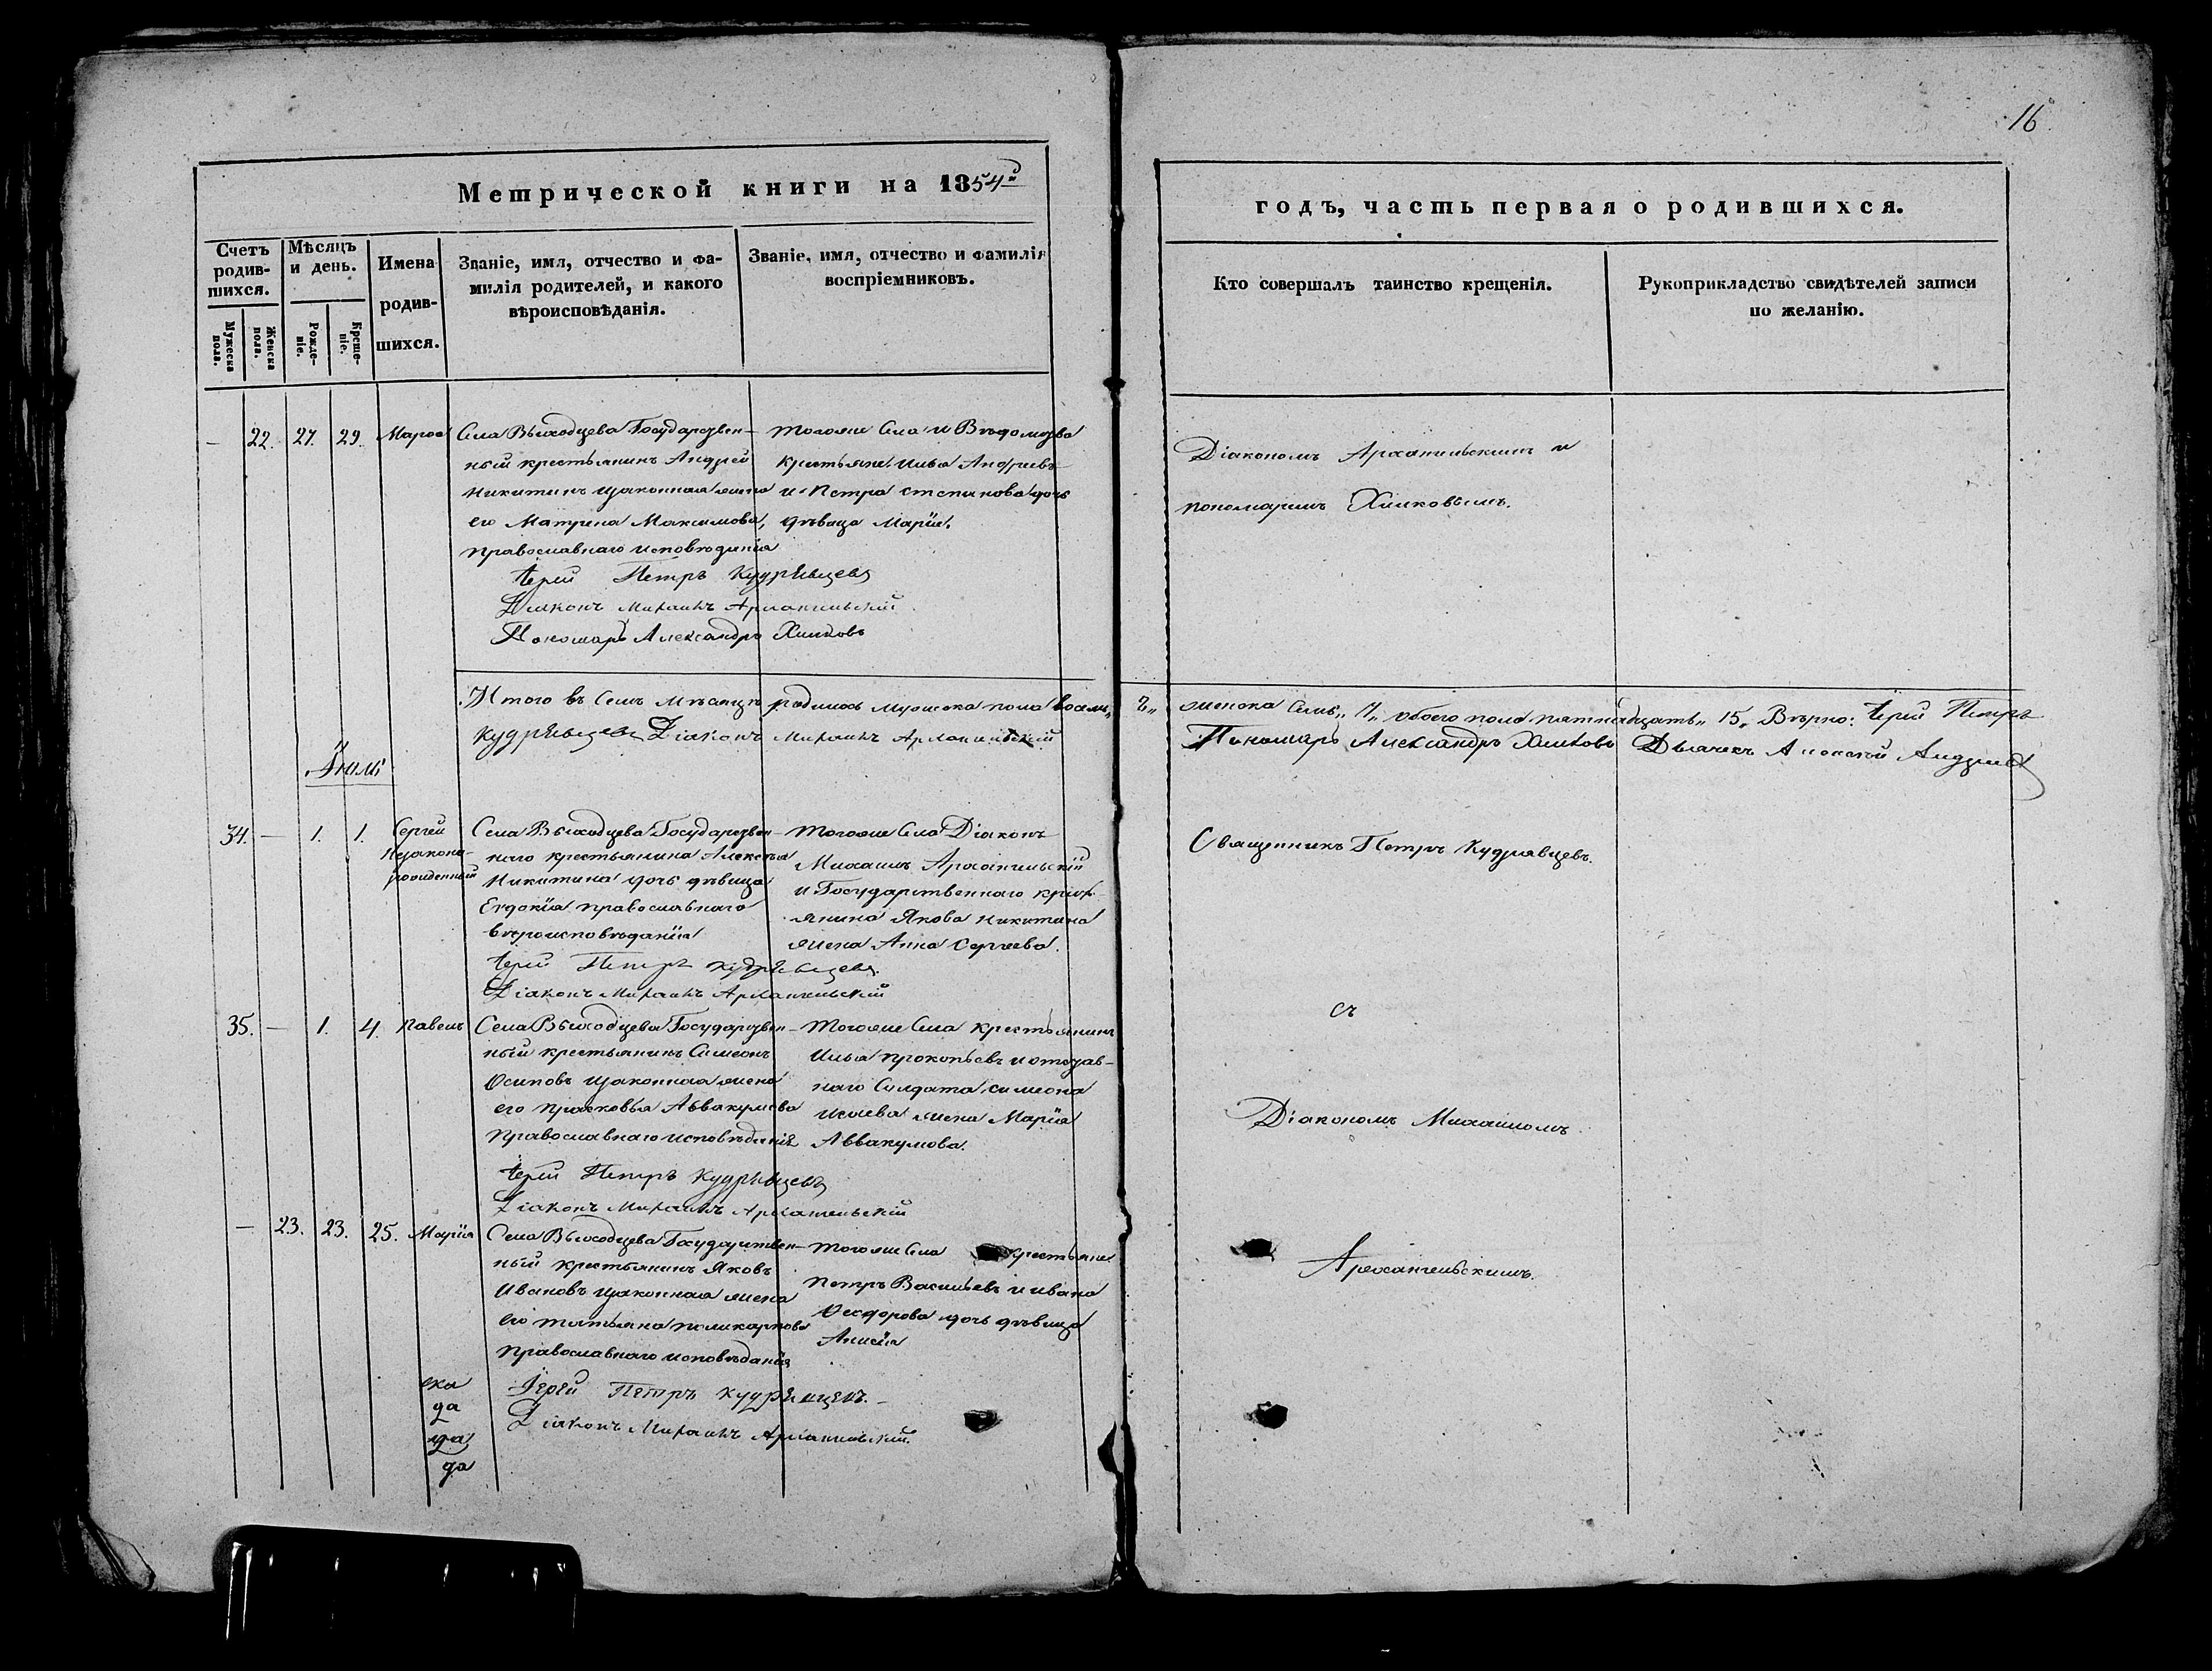 16
Метрической книги на 1854й
годъ, часть первая о родившихся.
Счетъ родив-шихся.
Мужеска пола.
Женска пола.
Мѣсяцъ и день.
Рожде-ніе.
Креще-ніе.
Имена родив-шихся.
Званіе, имя, отчество и фа-
милія родителей, и какого
вѣроисповѣданія.
Званіе, имя, отчество и фамилія
воспріемниковъ.
Кто совершалъ таинство крещенія.
Рукоприкладство свидѣтелей записи
по желанію.
— 22. 27. 29.
Села Выходцева Государствен-
ный крестьянинъ Андрей
Никитинъ изаконная жена
его Матрена Максимова,
православнаго исповѣданія
Іерей Петръ Кудрявцевъ
Діаконъ Михаилъ Архангельскій
Пономарь Александръ Хилковъ
тогоже Села и Вѣдомства
крестьяне Илья Андреевъ
и Петра степанова дочь
дѣвица Марія.
Діакономъ Архангельскимъ и
пономаремъ Хилковымъ.
Итого въ Семъ мѣсяцѣ родилось мужеска пола восемь
женска Семь„ 7„ обоего пола пятнадцать„ 15„ Вѣрно: Іерей Петръ
Кудрявцевъ Діаконъ Михаилъ Архангельскій
Пономарь Александръ Хилковъ Дьячекъ Алексѣй
Іюль
34. — 1. 1. Сергей
Незаконо-
рожденный
Села Выходцева Государствен-
наго крестьянина Алексѣя
Никитина дочь дѣвица
Евдокія православнаго
вѣроисповѣданія
Іерей Петръ Кудрявцевъ.
Діаконъ Михаилъ Архангельскій
тогоже Села Діаконъ
Михаилъ Архангельскій
и Государственнаго крест-
янина Якова Никитина
жена Анна Сергеева.
Священникъ Петръ Кудрявцевъ.
35. — 1. 4. Павелъ
Села Выходцева Государствен-
ный крестьянинъ Симеонъ
Осиповъ изаконная жена
его Прасковья Аввакумова
Православнаго исповѣданія
Іерей Петръ Кудрявцевъ
Діаконъ Михаилъ Архангельскій
тогоже Села крестьянинъ
Илья Прокопьевъ и отстав-
наго Солдата симеона
Исаева жена Марія
Аввакумова.
съ
Діакономъ Михаиломъ
— 23. 23. 25. Марія
Села Выходцева Государствен-
ный крестьянинъ Яковъ
Ивановъ изаконная жена
его татьяна поликарпова
православнаго исповѣданія
Іерей Петръ Кудрявцевъ.
Діаконъ Михаилъ Архангельскій.
тогоже Села крестьяне
Петръ Васильевъ и ивана
Феодорова дочь дѣвица
Анисія
Архангельскимъ.
ека
да
да
да